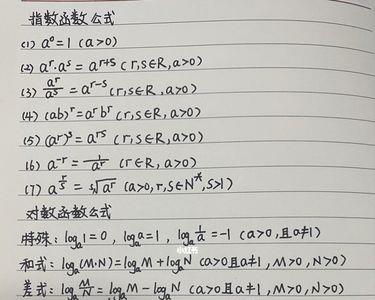 指数函数公式
(1) a⁰=1 (a>0)
(2) aʳ·aˢ=aʳ⁺ˢ (r,s∈R,a>0)
(3) aʳ/aˢ=aʳ⁻ˢ (r,s∈R,a>0)
(4) (ab)ʳ=aʳbʳ (r,s∈R,a>0)
(5) (aʳ)ˢ=aʳˢ (r,s∈R,a>0)
(6) a⁻ʳ=1/aʳ (r∈R,a>0)
(7) a^(r/s)=ˢ√aʳ (a>0,r,s∈N*,s>1)
对数函数公式
特殊:logₐ1=0, logₐa=1, logₐ1/a=-1 (a>0,且a≠1)
小红书
和式:logₐ(M·N)=logₐM+logₐN (a>0且a≠1,M>0,N>0)
差式:logₐM/N=logₐM-logₐN (a>0且a≠1,M>0,N>0)